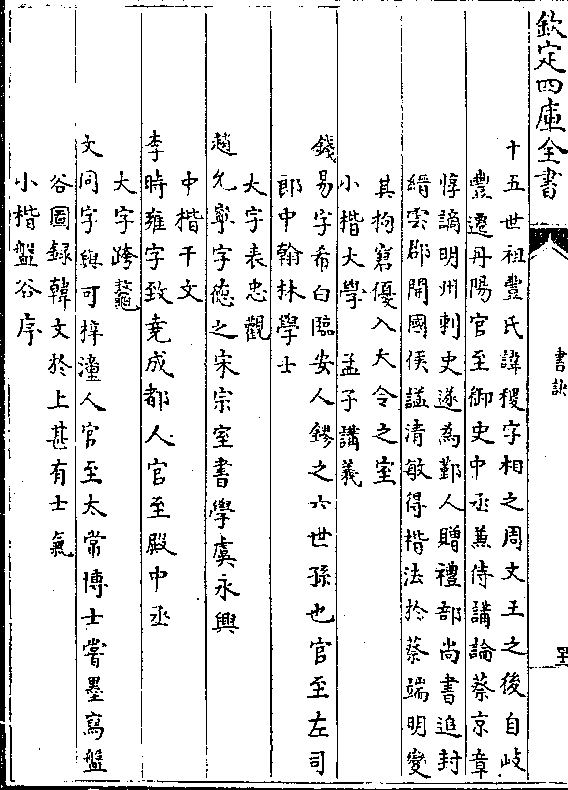 欽定四庫全書
書訣
十五世祖豐氏諱稷字相之周文王之後自岐
豐遷丹陽官至御史中丞兼侍講論蔡京章
惇謫明州刺史遂為鄞人贈禮部尚書追封
縉雲郡開國侯諡清敏得楷法於蔡端明變
其拘窘優入大令之室
小楷大學　孟子講義
錢易字希白臨安人鏐之六世孫也官至左司
郎中翰林學士
大字表忠觀
趙允寧字德之宋宗室書學虞永興
中楷千文
李時雍字致堯成都人官至殿中丞
大字跨鼇
文同字與可梓潼人官至太常博士嘗墨寫盤
谷圖録韓文於上甚有士氣
小楷盤谷序